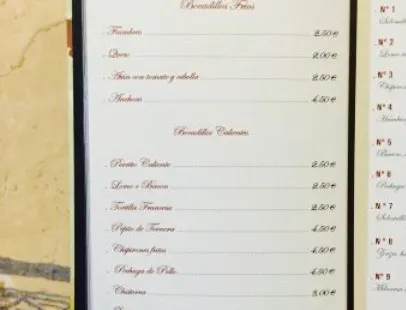 Bocadillos Frios
. Fiambres 2,50 €
. Queso 2,00 €
. Atún con tomate y cebolla 2,50 €
. Anchoas 4,50 €
Bocadillos Calientes
. Perrito Caliente 2,50 €
. Lomo o Bacon 2,50 €
. Tortilla Francesa 2,50 €
. Pepito de Ternera 4,50 €
. Chipirones fritos 4,50 €
. Pechuga de Pollo 4,50 €
. Chistorra 3,00 €
. Nº 1
(Solomill
. Nº 2
Lomo
. Nº 3
Chipirones
. Nº 4
. Nº 5
Bacon
. Nº 6
Pechuga
. Nº 7
Solomill
. Nº 8
. Nº 9
Milanesa